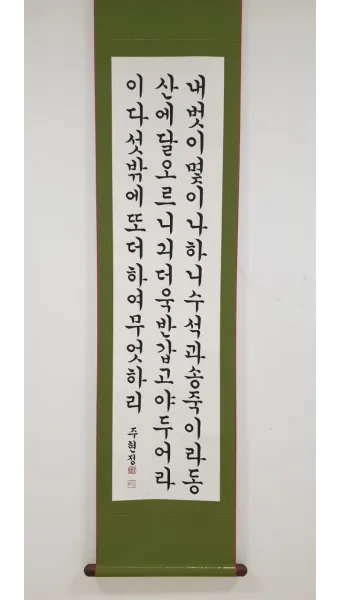 내벗이몇이나하니수석과송죽이라동
산에달오르니긔더욱반갑고야두어라
이다섯밖에또더하여무엇하리
주현정